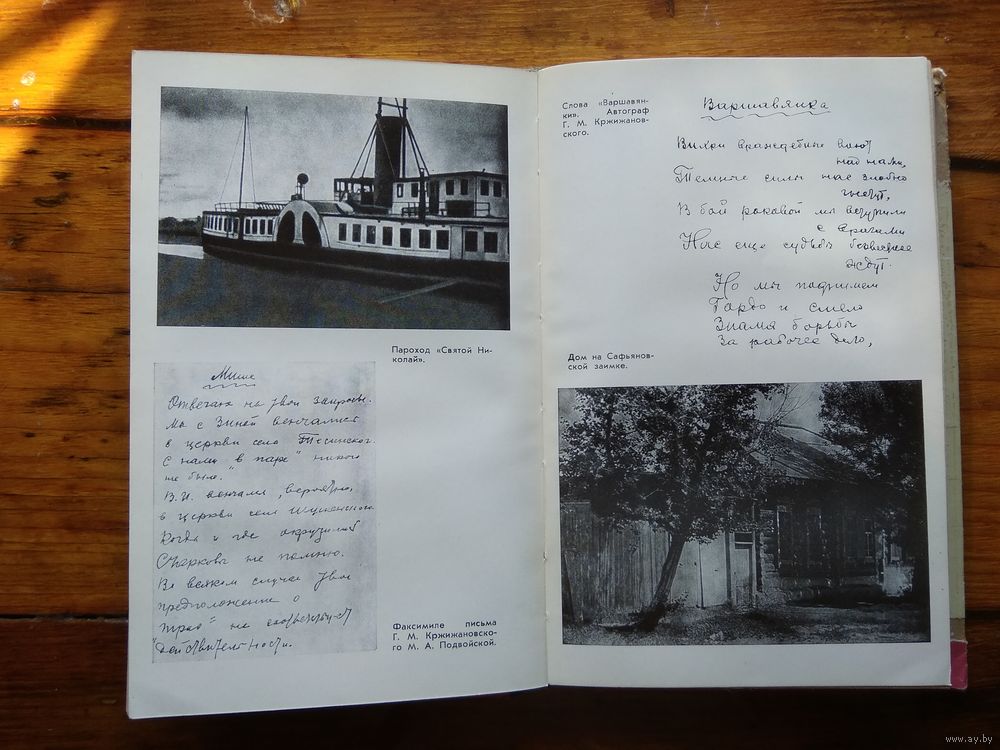 Пароход «Святой Ни-
колай».
Мише
Отвечаю на твои запросы.
Мы с Зиной венчались
в церкви села Тесинского.
С нами "в паре" никого
не было.
В.И. венчали, вероятно,
в церкви села Шушенского.
Когда и где окрутили
Старкова не помню.
Во всяком случае твои
предположение о
"трио" не соответств-т
действительности.
Факсимиле письма
Г. М. Кржижановско-
го М. А. Подвойской.
Слова «Варшавян-
ки». Автограф
Г. М. Кржижанов-
ского.
Варшавянка
Вихри враждебные веют
над нами,
Темные силы нас злобно
гнетут,
В бой роковой мы вступили
с врагами
Нас еще судьбы безвестные
ждут.
Но мы поднимем
Гордо и смело
Знамя борьбы
За рабочее дело,
Дом на Сафьянов-
ской заимке.
www.ay.by